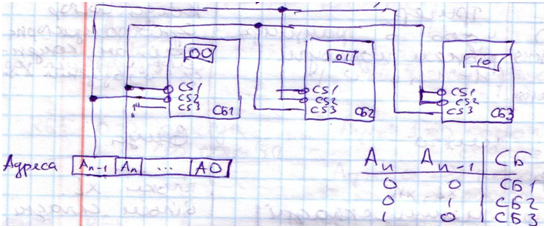 00
01
10
CS1
CS2
CS3
СБ1
CS1
CS2
CS3
СБ2
CS1
CS2
CS3
СБ3
Адреса
An-1 An ... A0
An An-1 СБ
0 0 СБ1
0 1 СБ2
1 0 СБ3